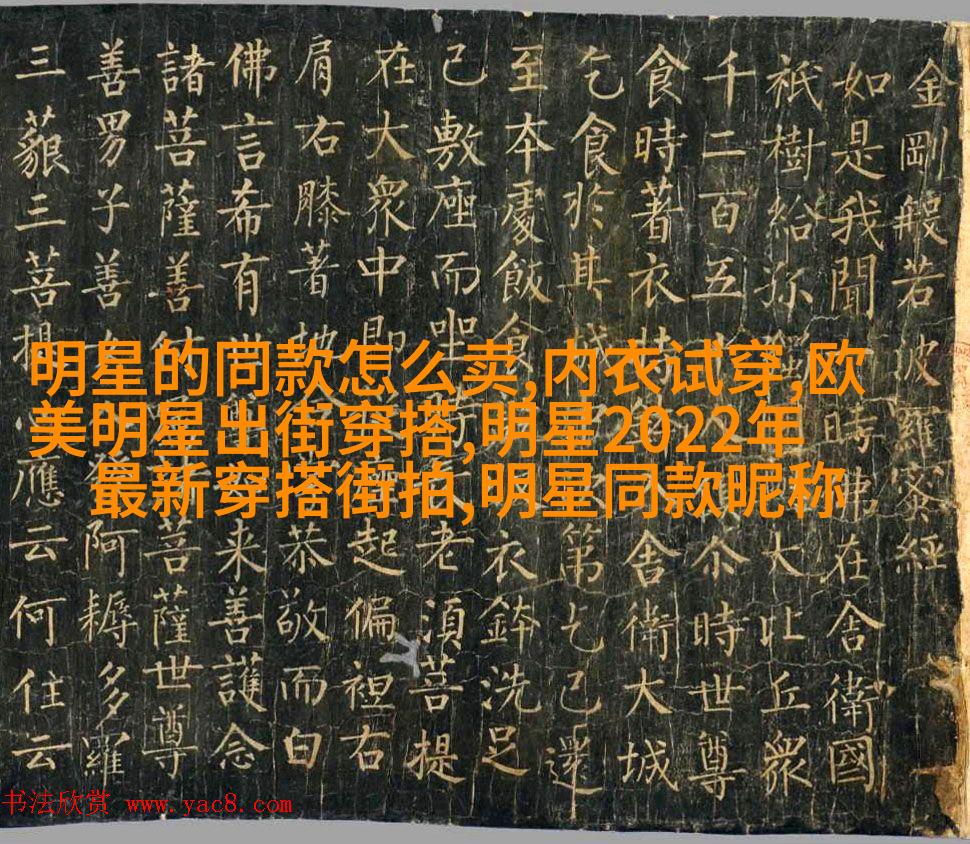 金剛般若波羅蜜經
如是我聞時佛在舍衛國
祇樹給孤大比丘衆
千二百五尒時世尊
食時著衣持入舍衛大城
乞食於其城第乞已還
至本處飯食衣鉢洗足
已敷座而坐老須菩提
在大衆中即起偏袒右
肩右膝著地恭敬而白
佛言希有世来善護念
諸菩薩善付菩薩世尊
善男子善女阿耨多羅
三藐三菩提心應云何住云
明星的同款怎么卖,内衣试穿,欧
美明星出街穿搭,明星2022年
最新穿搭街拍,明星同款昵称
书法欣赏 www.yac8.com